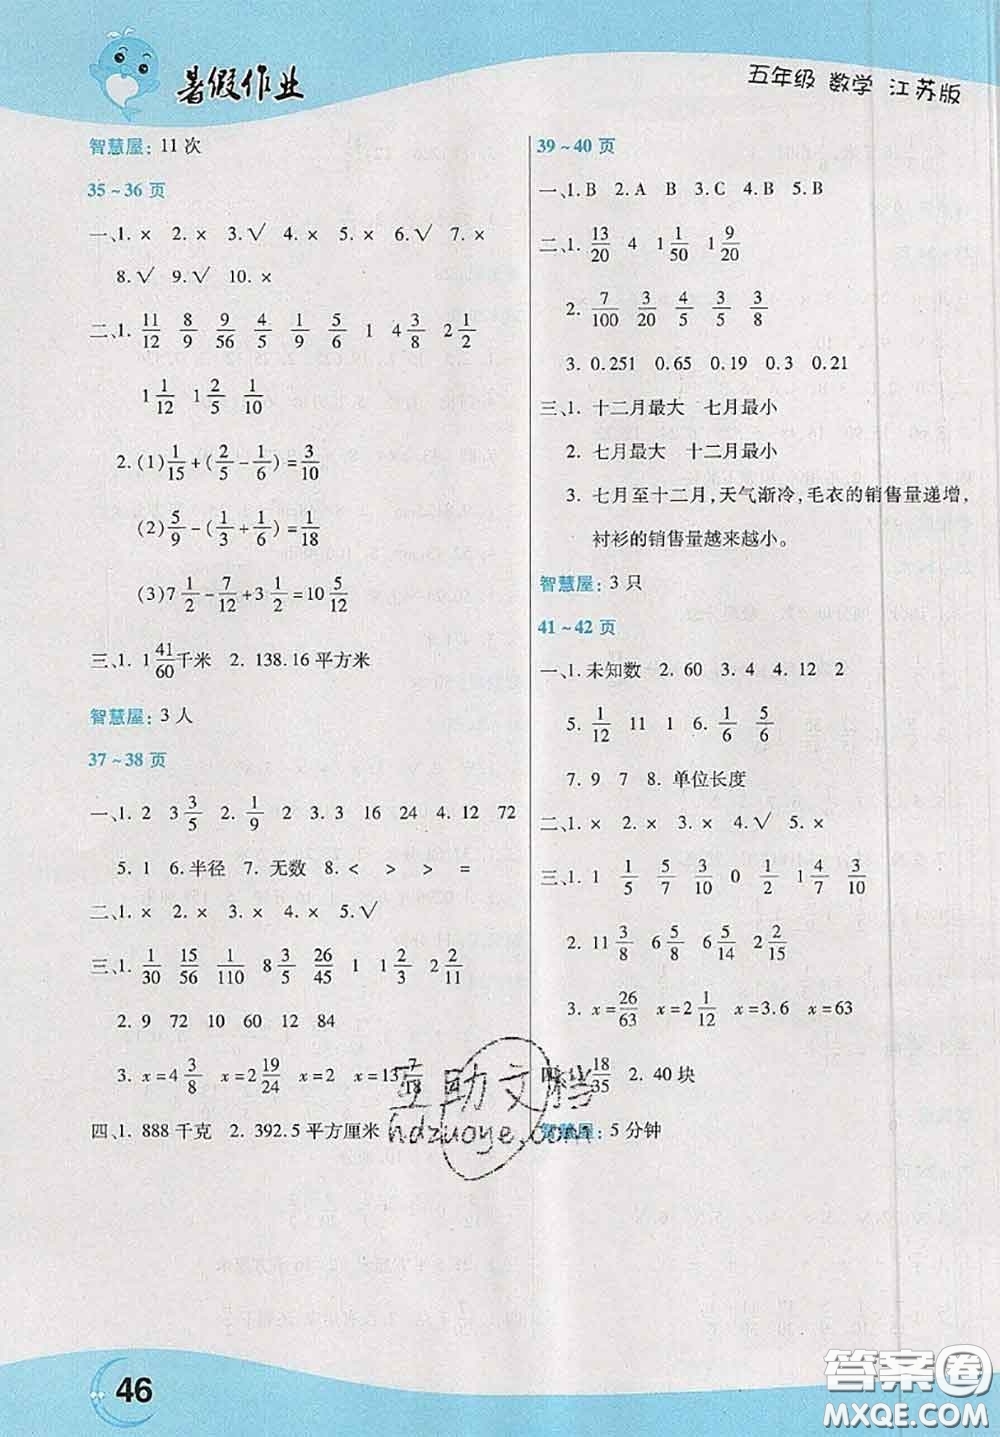 暑假作业
五年级 数学 江苏版
智慧屋：11次
35~36页
一、1. × 2. × 3. √ 4. × 5. × 6. √ 7. ×
8. √ 9. √ 10. ×
二、1. 11/12 8/9 9/56 4/5 1/9 5/6 1 4 3/8 2 1/2
1 1/12 1 2/5 1/10
2. (1) 1/15+(2/5-1/6)=3/10
(2) 5/9-(1/3+1/6)=1/18
(3) 7 1/2-7/12+3 1/2=10 5/12
三、1. 1 41/60千米 2. 138.16平方米
智慧屋：3人
37~38页
一、1. 2 3 3/5 2. 1/9 2 3. 3 16 24 4. 12 72
5. 1 6. 半径 7. 无数 8. < > > =
二、1. × 2. × 3. × 4. × 5. √
三、1. 1/30 15/56 1/110 8 3/5 26/45 1 1 2/3 2 2/11
2. 9 72 10 60 12 84
3. x=4 3/8 x=2 19/24 x=2 x=13 7/18
四、1. 888千克 2. 392.5平方厘米
39~40页
一、1. B 2. A B 3. C 4. B 5. B
二、1. 13/20 4 1 1/50 1 9/20
2. 7/100 3/20 4/5 3/5 3/8
3. 0.251 0.65 0.19 0.3 0.21
三、1. 十二月最大 七月最小
2. 七月最大 十二月最小
3. 七月至十二月，天气渐冷，毛衣的销售量递增，
衬衫的销售量越来越小。
智慧屋：3只
41~42页
一、1. 未知数 2. 60 3. 4 4. 12 2
5. 1/12 11 1 6. 1/6 5/6
7. 9 7 8. 单位长度
二、1. × 2. × 3. × 4. √ 5. ×
三、1. 1 1/5 5/7 3/10 0 1/2 4/7 3/10
2. 11 3/8 6 5/8 6 5/14 2 2/15
3. x=26/63 x=2 1/12 x=3.6 x=63
四、1. 18/35 2. 40块
智慧屋：5分钟
互助文档
hdzuoye.com
46
答案圈
MXQE.COM